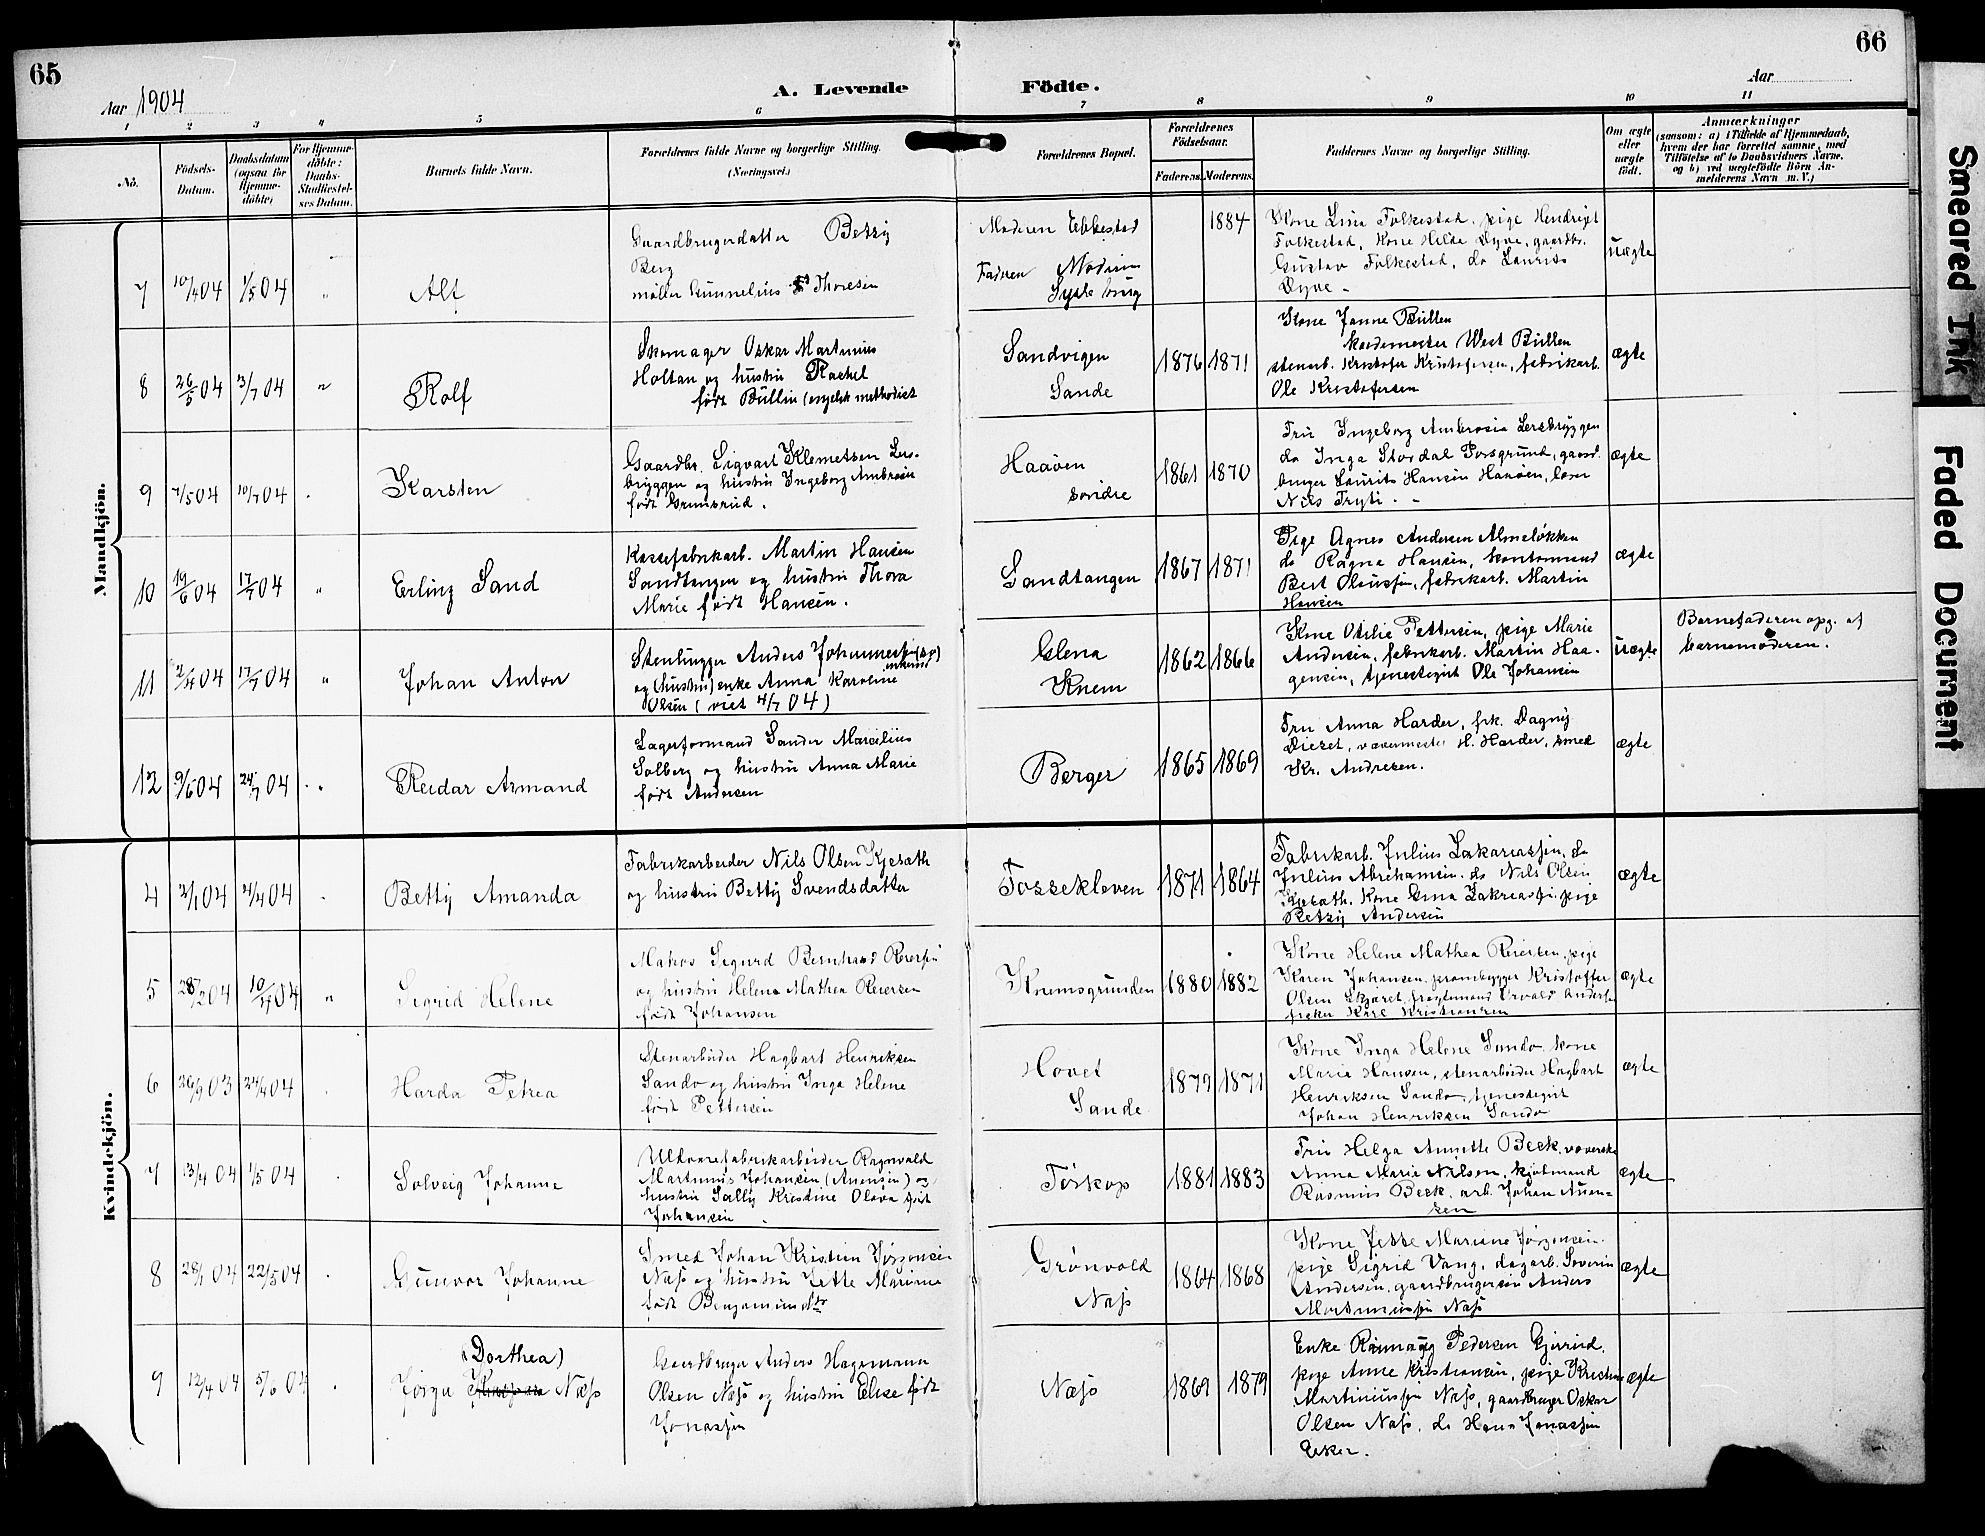 65
66
Aar 1904
A. Levende
Födte.
Aar
1 2 3 4 5 6 7 8 9 10 11
No.
Födsels-
Datum.
Daabsdatum
(ogsaa for
Hjemme-
döbte)
For Hjemme-
döbte:
Daabs-
Stadfæstel-
ses Datum.
Barnets fulde Navn.
Forældrenes fulde Navne og borgerlige Stilling.
(Næringsvei.)
Forældrenes Bopæl.
Forældrenes
Födselsaar.
Faderens. Moderens.
Faddernes Navne og borgerlige Stilling.
Om ægte
eller
uægte
født.
Anmærkninger
(saasom: a) i Tilfælde af Hjemmedaab,
hvem der har forrettet samme, med
Tilføielse af to Daabsvidners Navne,
og b) ved uægtefödte Börn An-
melderens Navn m. V.)
Mandkjön.
7 10/4 04 1/5 04 " Alf
Gaardbrugerdatter Betzy
Berg
møller Gunnelius Thoresen
Moderen Ebbestad
Faderen Modum
1884
Kone Lina Folkestad, pige Hendrijet
Folkestad, Kone Hilda Dyve, gaardbr.
Gustav Folkestad, do Laurits
Dyve.
uægte
8 26/5 04 3/7 04 " Rolf
Skomager Oskar Martinius
Holtan og hustru Rachel
født Bullin (engelsk methodist
Sandvigen
Sande
1876 1871
Kone Janne Bullen
West Bullen
stenarb. Kristofer Kristofersen, fabrikarb.
Ole Kristofersen
ægte
9 7/5 04 10/7 04 Karsten
Gaardbr. Sigvart Klemetsen Lers-
bryggen og hustru Ingeborg Ambrosia
født Grimsrud.
Haaøen
søndre
1861 1870
Fru Ingeborg Ambrosia Lersbryggen
do Inga Stordal Porsgrund, gaard-
bruger Laurits Hansen Haaøen, losen
Nils Tryti.
ægte
10 19/6 04 17/7 04 " Erling Sand
Kassefabrikarb. Martin Hansen
Sandtangen og hustru Thora
Marie født Hansen.
Sandtangen
1867 1871
Pige Agnes Andersen Almeløkken
do Ragna Hansen, kontormand
Bert Olaussen, fabrikarb. Martin
Hansen
ægte
11 2/4 04 17/7 04 " Johan Anton
Stenhugger Anders Johannessen
og (hustru) enke Anna Karoline
Olsen (viet 4/7 04)
Elena
Knem
1862 1866
Kone Otilie Pettersen, pige Marie
Andersen, fabrikarb. Martin Haa-
gensen, tjenestegut Ole Johansen
uægte
Barnefaderen opg. af
barnemoderen.
12 9/6 04 24/7 04 " Reidar Armand
Lagerformand Sander Marcelius
Solberg og hustru Anna Marie
født Andersen
Berger
1865 1869
Fru Anna Harder, frk. Dagny
Diezet, vævermester H. Harder, smed
Kr. Andresen.
ægte
Kvindekjön.
4 2/1 04 4/4 04 Betty Amanda
Fabrikarbeider Nils Olsen Kjesath
og hustru Betty Svendsdatter
Fossekleven
1871 1864
Fabrikarb. Julius Zakariassen, do
Julius Abrahamsen, do Nils Olsen
Kjesath, Kone Gina Zakreassen pige
Betzy Andersen
ægte
5 28/2 04 10/4 04 " Sigrid Helene
Matros Sigurd Bernhard Reiersen
og hustru Helene Mathea Reiersen
født Johansen
Knemsgrunden
1880 1882
Kone Helene Mathea Reiersen, pige
Karen Johansen, prambygger Kristoffer
Olsen fragtemand Orvald Anders
fisker Karl Kristiansen
ægte
6 26/9 03 24/4 04 Harda Petrea
Stenarbeider Hagbart Henriksen
Sando og hustru Inga Helene
født Pettersen
Hovet
Sande
1879 1871
Kone Inga Helene Sando, kone
Maria Hansen, stenarbeider Hagbart
Henriksen Sando, tjenestegut
Johan Henriksen Sando
ægte
7 13/4 04 1/5 04 Solveig Johanne
Uldvarefabrikarbeider Ragnvald
Martinius Johansen (Auensen) og
hustru Sally Kristine Olava født
Johansen
Førskop
1881 1883
Fru Helga Annette Beck, væverske
Anna Marie Nilsen, kjøbmand
Rasmus Beck, arb. Johan Auen-
sen
ægte
8 28/1 04 22/5 04 Gunvor Johanne
Smed Johan Kristian Jørgensen
Næss og hustru Jette Mariane
født Benjamindtr
Grønvold
Næss
1864 1868
Kone Jette Mariane Jørgensen
pige Sigrid Vang, dagarb. Severin
Andersen, gaardbrugersøn Anders
Martinussen Næss
ægte
9 12/4 04 5/6 04 (Dorthea)
Jørga Næss
Gaardbruger Anders Hagemann
Olsen Næss og hustru Elise født
Jonassen
Næss
1869 1879
Enke Pedersen Gjerrud,
pige Anne Kristiansen, pige Kristine
Martiniussen Næss, gaardbruger Oskar
Olsen Næss, do Hans Jonassen
Esker.
ægte
Smeared Ink
Faded Document